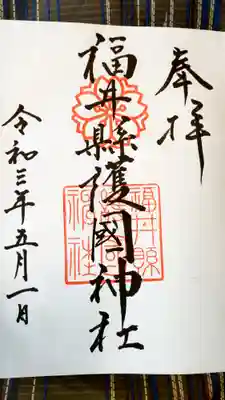 奉拝
福井縣護國神社
令和三年五月一日
福井縣護國神社